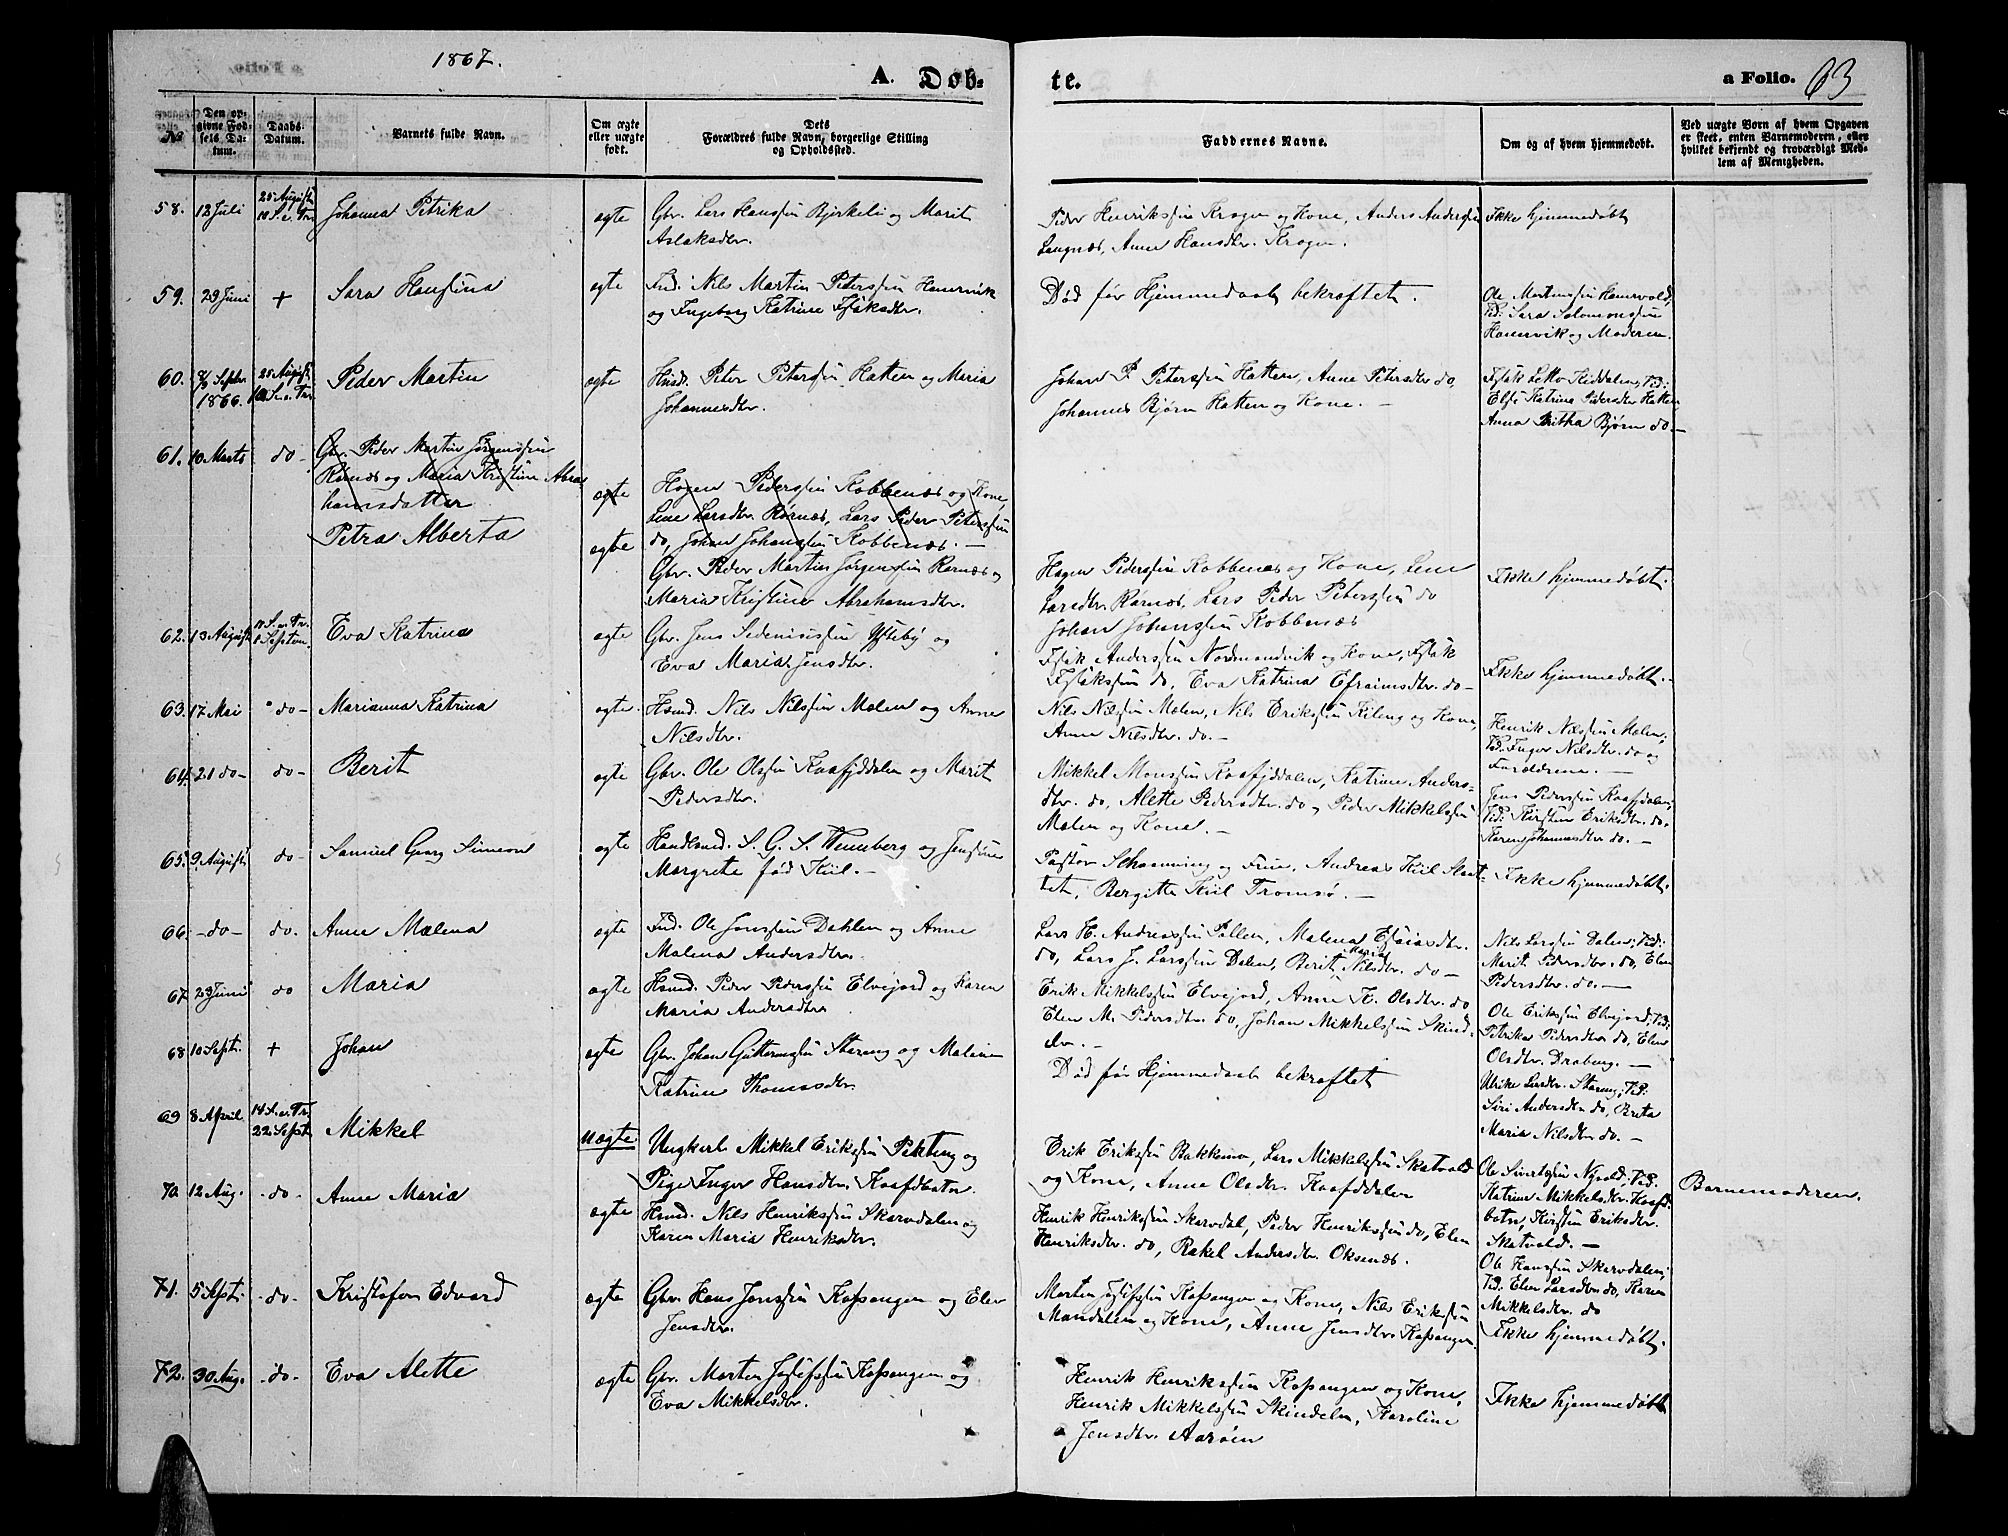 1867.
A. Døb-
te.
a Folio. 63
№
Den op-
givne Fød-
sels Da-
tum.
Daabs-
Datum.
Barnets fulde Navn.
Om ægte
eller uægte
født.
Dets
Forældres fulde Navn, borgerlige Stilling
og Opholdssted.
Faddernes Navne.
Om og af hvem hjemmedøbt.
Ved uægte Børn af hvem Opgaven
er skeet, enten Barnemoderen, eller
hvilket bekjendt og troværdigt Med-
lem af Menigheden.
58. 12 Juli
25 August
10 S. e. Tr.
Johanna Petrika
ægte
Gbr. Lars Hanssen Bjerkeli og Marit
Aslaksdtr.
Peder Henrikssen Krogen og Kone, Anders Anderssen
Lengnæs, Anne Hansdtr. Krogen.
Ikke hjemmedøbt
59. 29 Juni + Sara Hansina
ægte
Ind. Nils Martin Peterssen Hamrvik
og Ingeborg Katrine Isaksdtr.
Død før Hjemmedaab bekræftet.
Ole Mortenssen Hamrvold,
Vid: Sara Salomonssen
Hamrvik og Moderen.
60. 8/9 Septbr.
1866.
25 August
10 S. e. Tr.
Peder Martin
ægte
Husd. Peter Peterssen Hatten og Maria
Johannesdtr.
Johan P. Peterssen Hatten, Anne Petersdtr do,
Johannes Bjørn Hatten og Kone. -
Isak Kiddalen, Vid:
Else Katrina Pedersdtr Hatten
Anna Britha Bjørn do. -
61. 10 Marts do -
Gbr. Peder Martin Jørgenssen
Rørnæs og Maria Kristine Abra-
hamsdatter
Petra Alberta
ægte
ægte
Hagen Pederssen Kobbenæs og Kone,
Lene Larsdtr. Rørnæs, Lars Peder Peterssen
do, Johan Johanssen Kobbenæs. -
Gbr. Peder Martin Jørgenssen Rørnæs og
Maria Kristine Abrahamsdtr.
Hagen Pederssen Kobbenæs og Kone, Lene
Larsdtr. Rørnæs, Lars Peder Peterssen do
Johan Johanssen Kobbenæs
Ikke hjemmedøbt.
62. 13 August
11 S. e. Tr.
1 Septem.
Eva Katrina
ægte
Gbr. Jens Ytteby og
Eva Maria Jensdtr.
Isak Anderssen Nordmandvik og Kone, Isak
Isakssen do, Eva Katrina Efraimsdtr. do -
Ikke hjemmedøbt. -
63. 17 Mai do - Marianna Katrina
ægte
Hsmd. Nils Nilssen Mælen og Anne
Nilsdtr.
Nils Nilssen Mælen, Nils Erikssen Kileng og Kone,
Anne Nilsdtr. do. -
Henrik Nilssen Mælen;
Vid: Inger Nilsdtr. do og
Forældrene. -
64. 21 do - do - Berit
ægte
Gbr. Ole Olssen Kaafjddalen og Marit
Pedersdtr.
Mikkel Monssen Kaafjddalen, Katrine Anders-
dtr. do, Alette Pedersdtr. do, Peder Mikkelssen
Mælen og Kone. -
Jens Pederssen Kaafjdalen;
Vid: Kirsten Eriksdtr. do,
Karen Johannesdtr do. -
65. 9 August do - Samuel Georg Simeon
ægte
Handlsmd. S. G. S. Wennberg og Jensine
Margrete fød Kiil. -
Pastor Schanning og Frue, Andreas Kiil Slæt-
tet, Bergitte Kiil Tromsø. -
Ikke hjemmedøbt.
66. - do - do. Anne Malena
ægte
Ind. Ole Jonssen Dahlen og Anne
Malena Andersdtr.
Lars H. Andreassen Pollen, Malena Esaiasdtr.
do, Lars J. Larssen Dalen, Berit Maria Nilsdtr. do -
Nils Larssen Dalen; Vid:
Marit Pedersdtr. do, Elen
Pedersdtr. do. -
67 23 Juni do Maria
ægte
Hsmd. Peder Pederssen Elvejord og Karen
Maria Andersdtr
Erik Mikkelssen Elvejord, Anne K. Olsdtr. do
Elen M. Pedersdtr. do, Johan Mikkelssen Skind-
elv. -
Ole Erikssen Elvejord; Vid:
Petrika Pedersdtr do, Elen
Olsdtr. Draberg. -
68 10 Sept. + Johan
ægte
Gbr. Johan Guttormssen Stareng og Malene
Katrine Thomasdtr.
Død før Hjemmedaab bekræftet
Ulrike Larsdtr. Stareng; Vid:
Siri Andersdtr do, Berita
Maria Nilsdtr do. -
69 8 April
14 S. e. Tr.
22 Sept.
Mikkel
Uægte
Ungkarl Mikkel Erikssen og
Pige Inger Hansdtr. Kaafdbotn.
Erik Erikssen Bakkemo, Lars Mikkelssen Skatvold
og Kone, Anne Olsdtr. Kaafddalen
Ole Sivertssen Nyvold; Vid:
Katrine Mikkelsdtr. Kaafd-
botn, Kirsten Eriksdtr.
Skatvold. -
Barnemoderen.
70. 12 Aug. - do - Anne Maria
ægte
Hsmd. Nils Henrikssen Skarvdalen og
Karen Maria Henriksdtr.
Henrik Henrikssen Skarvdal, Peder Henrikssen do, Elen
Henriksdtr. do, Rakel Andersdtr. Oksenæs.
Ole Hanssen Skarvdalen;
Vid: Elen Larsdtr do, Karen
Mikkelsdtr. do
71. 5 Sept. - do - Kristofer Edvard
ægte
Gbr. Hans Jenssen Kaasangen og Elen
Jensdtr.
Morten Josefssen Kaasangen og Kone, Nils Erikssen
Mandalen og Kone, Anne Jensdtr Kaasangen.
Ikke hjemmedøbt.
72. 30 Aug. - do - Eva Alette
ægte
Gbr. Morten Josefssen Kaasangen og
Eva Mikkelsdtr.
Henrik Henrikssen Kaasangen og Kone,
Henrik Mikkelssen Skindelv, Karoline
Jensdtr. Aarøen
Ikke hjemmedøbt